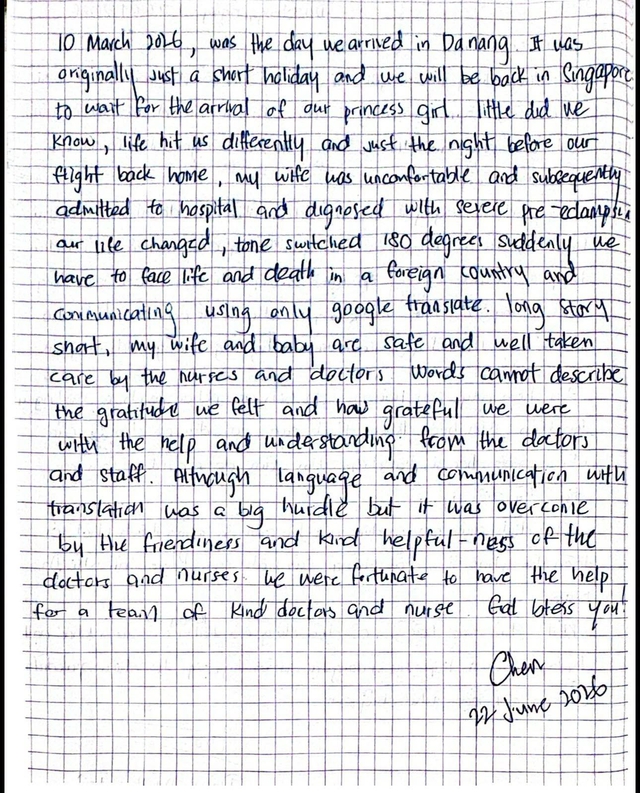 10 March 2026, was the day we arrived in Danang. It was
originally just a short holiday and we will be back in Singapore
to wait for the arrival of our princess girl. little did we
know, life hit us differently and just the night before our
flight back home, my wife was uncomfortable and subsequently
admitted to hospital and dignosed with severe pre-eclampsia
our life changed, tone switched 180 degrees suddenly we
have to face life and death in a foreign country and
communicating using only google translate. long story
short, my wife and baby are safe and well taken
care by the nurses and doctors. Words cannot describe
the gratitude we felt and how grateful we were
with the help and understanding from the doctors
and staff. Although language and communication with
translation was a big hurdle but it was overcome
by the friendiness and kind helpful-ness of the
doctors and nurses. We were fortunate to have the help
for a team of kind doctors and nurse. God bless you!
Chen
22 June 2026